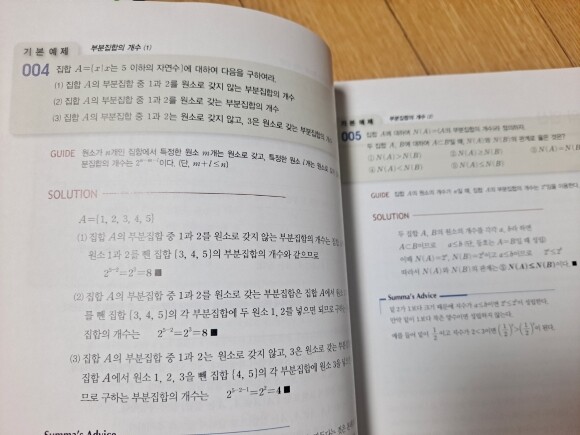 기본예제 부분집합의 개수 (1)
004 집합 A={x|x는 5 이하의 자연수}에 대하여 다음을 구하여라.
(1) 집합 A의 부분집합 중 1과 2를 원소로 갖지 않는 부분집합의 개수
(2) 집합 A의 부분집합 중 1과 2를 원소로 갖는 부분집합의 개수
(3) 집합 A의 부분집합 중 1과 2는 갖지 않고, 3은 원소로 갖는 부분집합의 개수
GUIDE 원소가 n개인 집합에서 특정한 원소 m개는 원소로 갖고, 특정한 원소 l개는 원소로
분집합의 개수는 2ⁿ⁻ᵐ⁻ˡ이다. (단, m+l≤n)
SOLUTION
A={1, 2, 3, 4, 5}
(1) 집합 A의 부분집합 중 1과 2를 원소로 갖지 않는 부분집합의 개수는
원소 1과 2를 뺀 집합 {3, 4, 5}의 부분집합의 개수와 같으므로
2⁵⁻²=2³=8 ■
(2) 집합 A의 부분집합 중 1과 2를 원소로 갖는 부분집합은 집합 A에서 원소
를 뺀 집합 {3, 4, 5}의 각 부분집합에 두 원소 1, 2를 넣으면 되므로
집합의 개수는 2⁵⁻²=2³=8 ■
(3) 집합 A의 부분집합 중 1과 2는 원소로 갖지 않고, 3은 원소로 갖는
집합 A에서 원소 1, 2, 3을 뺀 집합 {4, 5}의 각 부분집합에 원소 3을
므로 구하는 부분집합의 개수는 2⁵⁻²⁻¹=2²=4 ■
Summa's Advice
기본예제 부분집합의 개수 (2)
005 집합 A에 대하여 N(A)=(A의 부분집합의 개수)라 정의하자.
두 집합 A, B에 대하여 A⊂B일 때, N(A)와 N(B)의 관계로 옳은 것은?
① N(A)>N(B) ② N(A)≥N(B) ③ N(A)=N(B)
④ N(A)<N(B) ⑤ N(A)≤N(B)
GUIDE 집합 A의 원소의 개수가 n일 때, 집합 A의 부분집합의 개수는 2ⁿ임을 이용한다.
SOLUTION
두 집합 A, B의 원소의 개수를 각각 a, b라 하면
A⊂B이므로 a≤b (단, 등호는 A=B일 때 성립)
이때 N(A)=2ᵃ, N(B)=2ᵇ이고 a≤b이므로 2ᵃ≤2ᵇ
따라서 N(A)와 N(B)의 관계는 ⑤ N(A)≤N(B)이다. ■
Summa's Advice
밑 2가 1보다 크기 때문에 지수가 a≤b이면 2ᵃ≤2ᵇ이 성립한다.
만약 밑이 1보다 작은 양수이면 성립하지 않는다.
예를 들어 밑이 1/2이고 지수가 2<3이면 (1/2)²>(1/2)³이 된다.